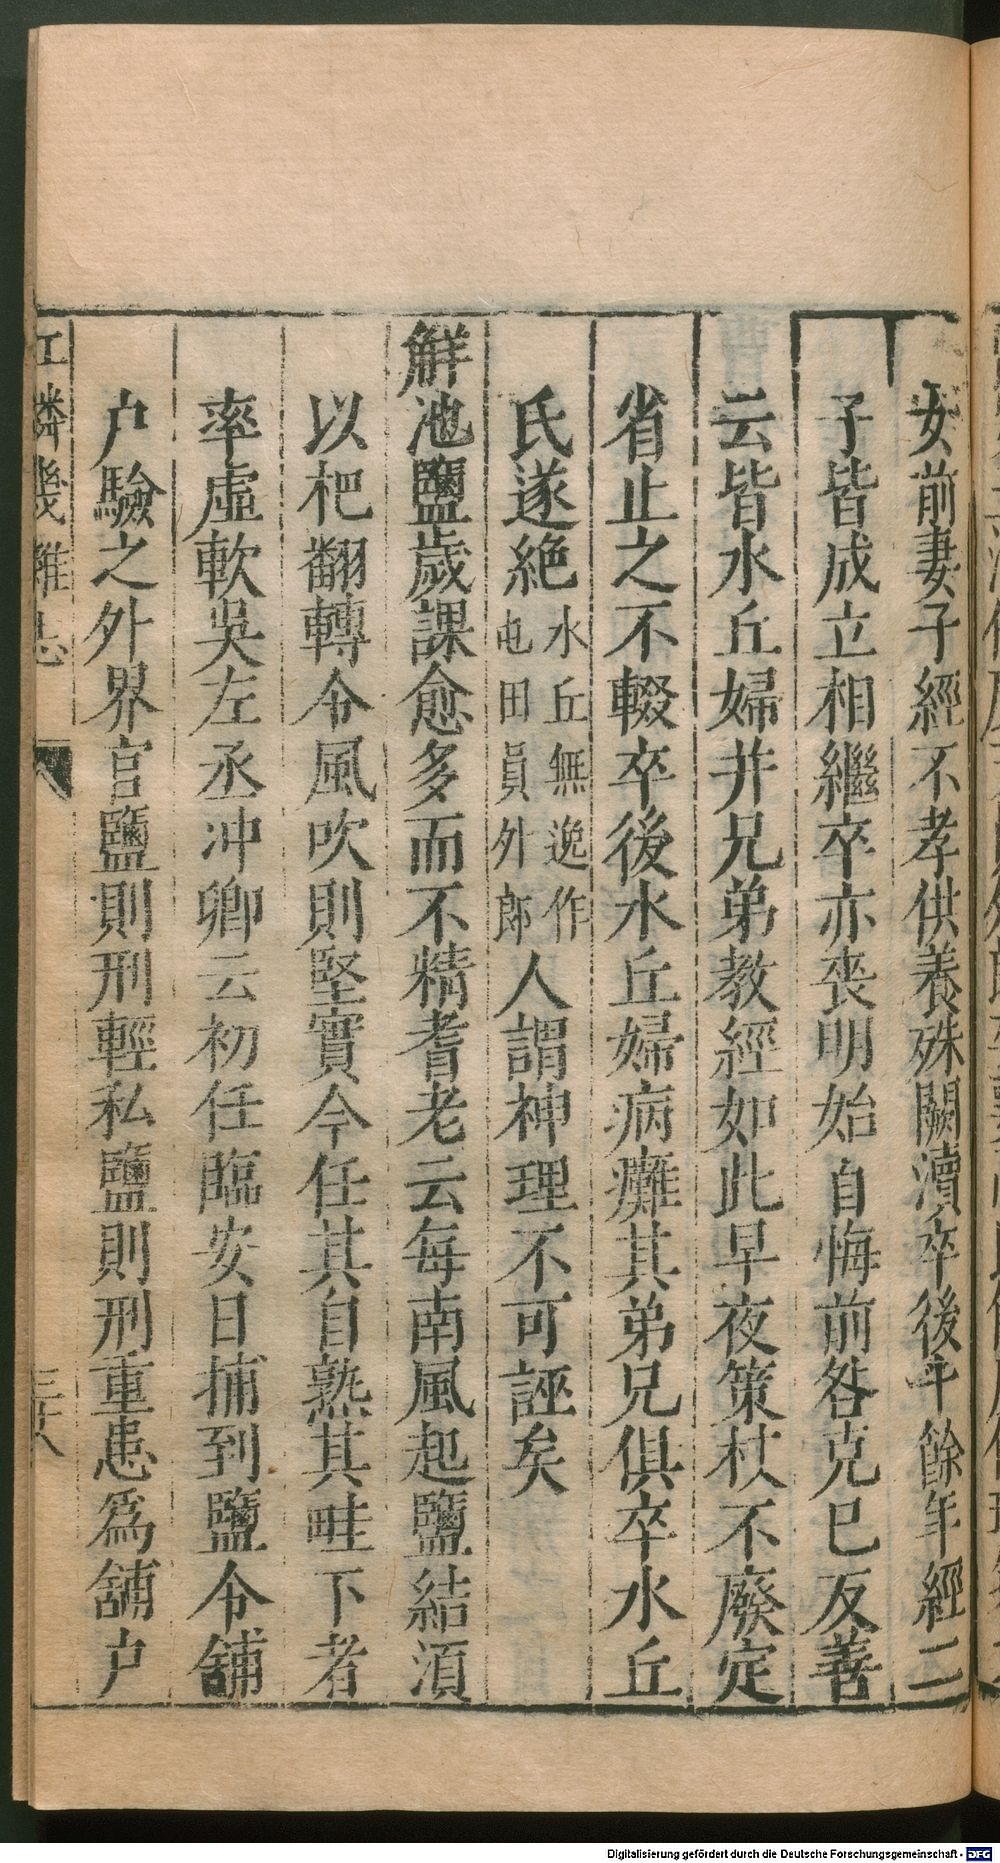 女前妻子經不孝供養殊闕瀆卒後年餘年經二
子皆成立相繼卒亦喪明始自悔前咎克已反善
云皆水丘婦并兄弟教經如此早夜策杖不廢定
省止之不輟卒後水丘婦病癱其弟兄俱卒水丘
氏遂絶水丘無逸作屯田員外郎人謂神理不可誣矣
解池鹽歲課愈多而不精耆老云每南風起鹽結須
以杷翻轉令風吹則堅實今任其自熟其畦下者
率虛軟吳左丞冲卿云初任臨安日捕到鹽令舖
户驗之外界官鹽則刑輕私鹽則刑重患爲舖户
江隣幾雜志 三十八
Digitalisierung gefördert durch die Deutsche Forschungsgemeinschaft - DFG